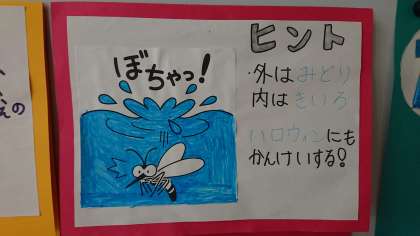 ぼちゃっ!
ヒント
・外はみどり
内はきいろ
ハロウィンにも
かんけいする!